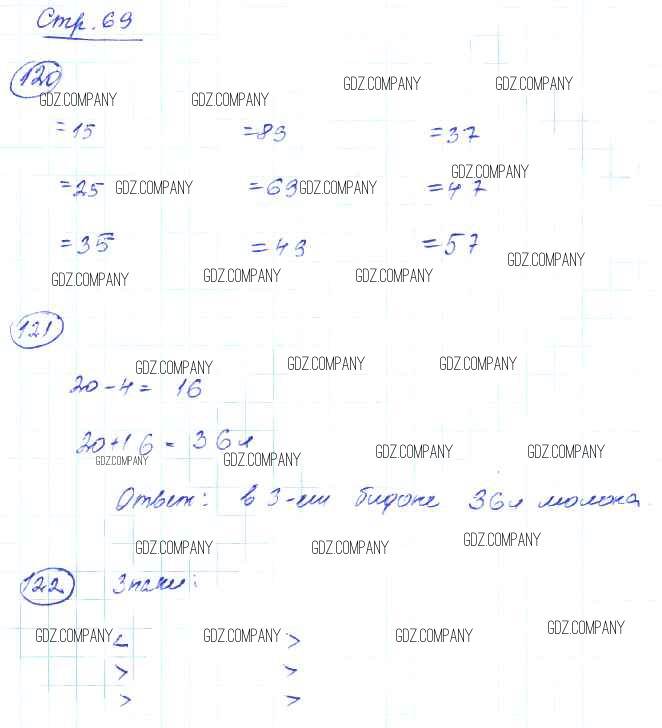 Стр. 69
120
GDZ.COMPANY GDZ.COMPANY GDZ.COMPANY GDZ.COMPANY
=15 =89 =37
=25 GDZ.COMPANY =69 GDZ.COMPANY =47 GDZ.COMPANY
=35 =49 =57
GDZ.COMPANY GDZ.COMPANY GDZ.COMPANY GDZ.COMPANY
121
GDZ.COMPANY GDZ.COMPANY GDZ.COMPANY
20-4= 16
20+16 = 36л
GDZ.COMPANY GDZ.COMPANY GDZ.COMPANY GDZ.COMPANY
Ответ: в 3-ем бидоне 36л молока
GDZ.COMPANY GDZ.COMPANY GDZ.COMPANY
122 Знаки:
GDZ.COMPANY < GDZ.COMPANY > GDZ.COMPANY GDZ.COMPANY
> >
> >